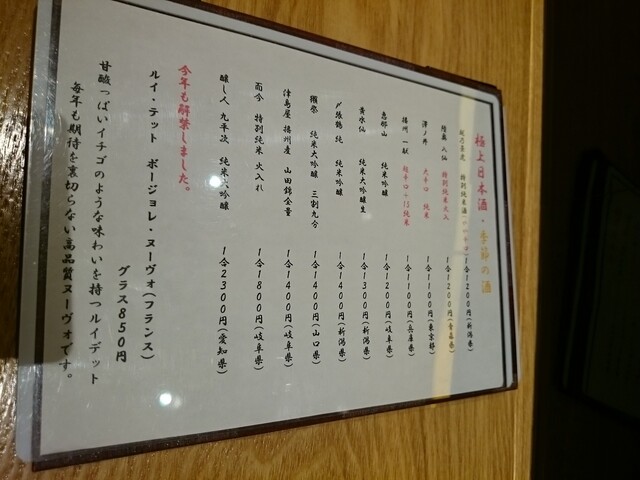 極上日本酒・季節の酒
特別純米酒 1合1200円(新潟県)
陸奥八仙 特別純米火入 1合1200円(青森県)
澤ノ井 大辛口 純米 1合1100円(東京都)
播州一献 超辛口+15純米 1合1100円(兵庫県)
恵那山 純米吟醸 1合1200円(岐阜県)
黄水仙 純米大吟醸生 1合1300円(新潟県)
〆張鶴 純 純米吟醸 1合1400円(新潟県)
獺祭 純米大吟醸 三割九分 1合1400円(山口県)
津島屋 播州産 山田錦全量 1合1400円(岐阜県)
而今 特別純米 火入れ 1合1800円(岐阜県)
醸し人 九平次 純米大吟醸 1合2300円(愛知県)
今年も解禁しました。
ルイ・テット ボージョレ・ヌーヴォ(フランス)
グラス850円
甘酸っぱいイチゴのような味わいを持つルイデット
毎年も期待を裏切らない高品質ヌーヴォです。